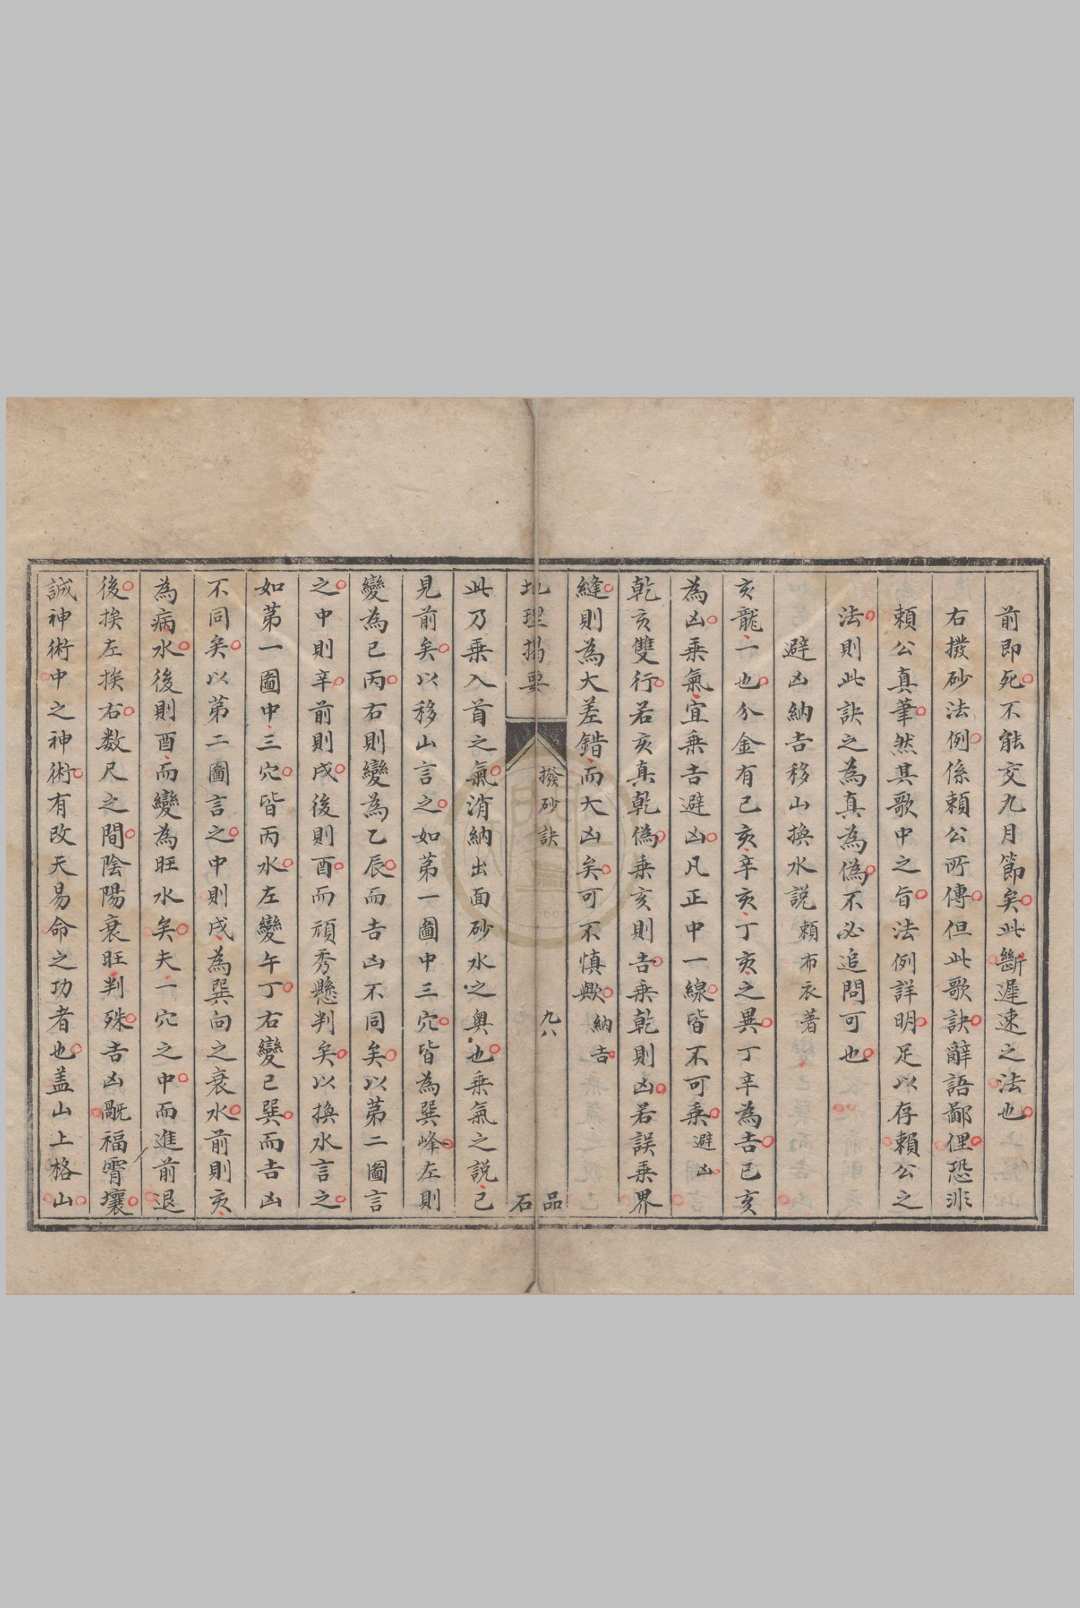 前即死不能交九月節矣此斷遲速之法也
右撥砂法例係頼公所傳但此歌訣辭語鄙俚恐非
頼公真筆然其歌中之旨法例詳明足以存頼公之
法則此訣之為真為偽不必追問可也
避凶納吉移山換水說 頼布衣著
亥龍一也分金有己亥辛亥丁亥之異丁辛為吉己亥
為凶乗氣宜乗吉避凶凡正中一線皆不可乗 避凶
乾亥雙行若亥真乾偽乗亥則吉乗乾則凶若誤乗界
縫則為大差錯而大凶矣可不慎歟 納吉
地理揭要 撥砂訣 九八 品石
此乃乗入首之氣消納出面砂水之奥也乗氣之説已
見前矣以移山言之如第一圖中三穴皆為巽峰左則
變為已丙右則變為乙辰而吉凶不同矣以第二圖言
之中則辛前則戌後則酉而頑秀懸判矣以換水言之
如第一圖中三穴皆丙水左變午丁右變已巽而吉凶
不同矣以第二圖言之中則戌為巽向之衰水前則亥
為病水後則酉而變為旺水矣夫一穴之中而進前退
後挨左挨右数尺之間陰陽衰旺判殊吉凶禍福霄壤
誠神術中之神術有改天易命之功者也盖山上格山